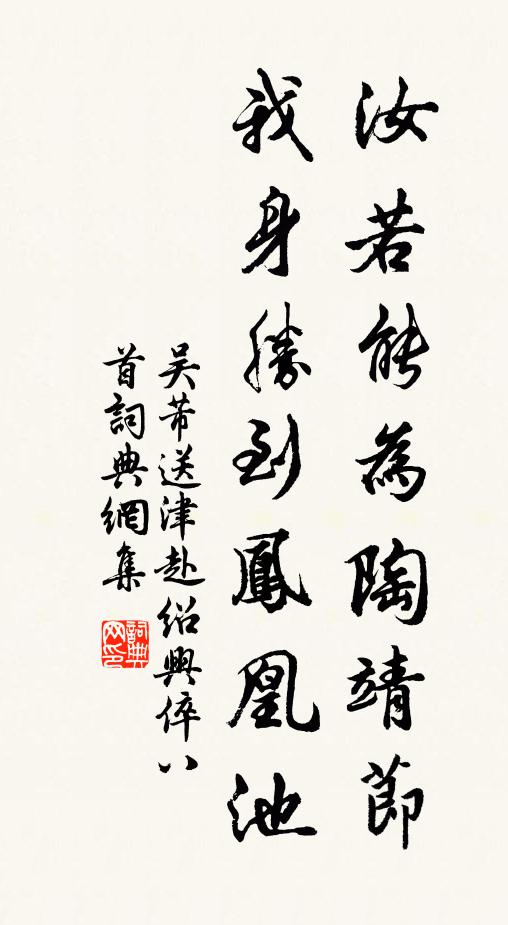 汝若能為陶靖節
我身勝到鳳凰池
吳芾送津赴紹興倅八
首詞典網集
詞典
网印